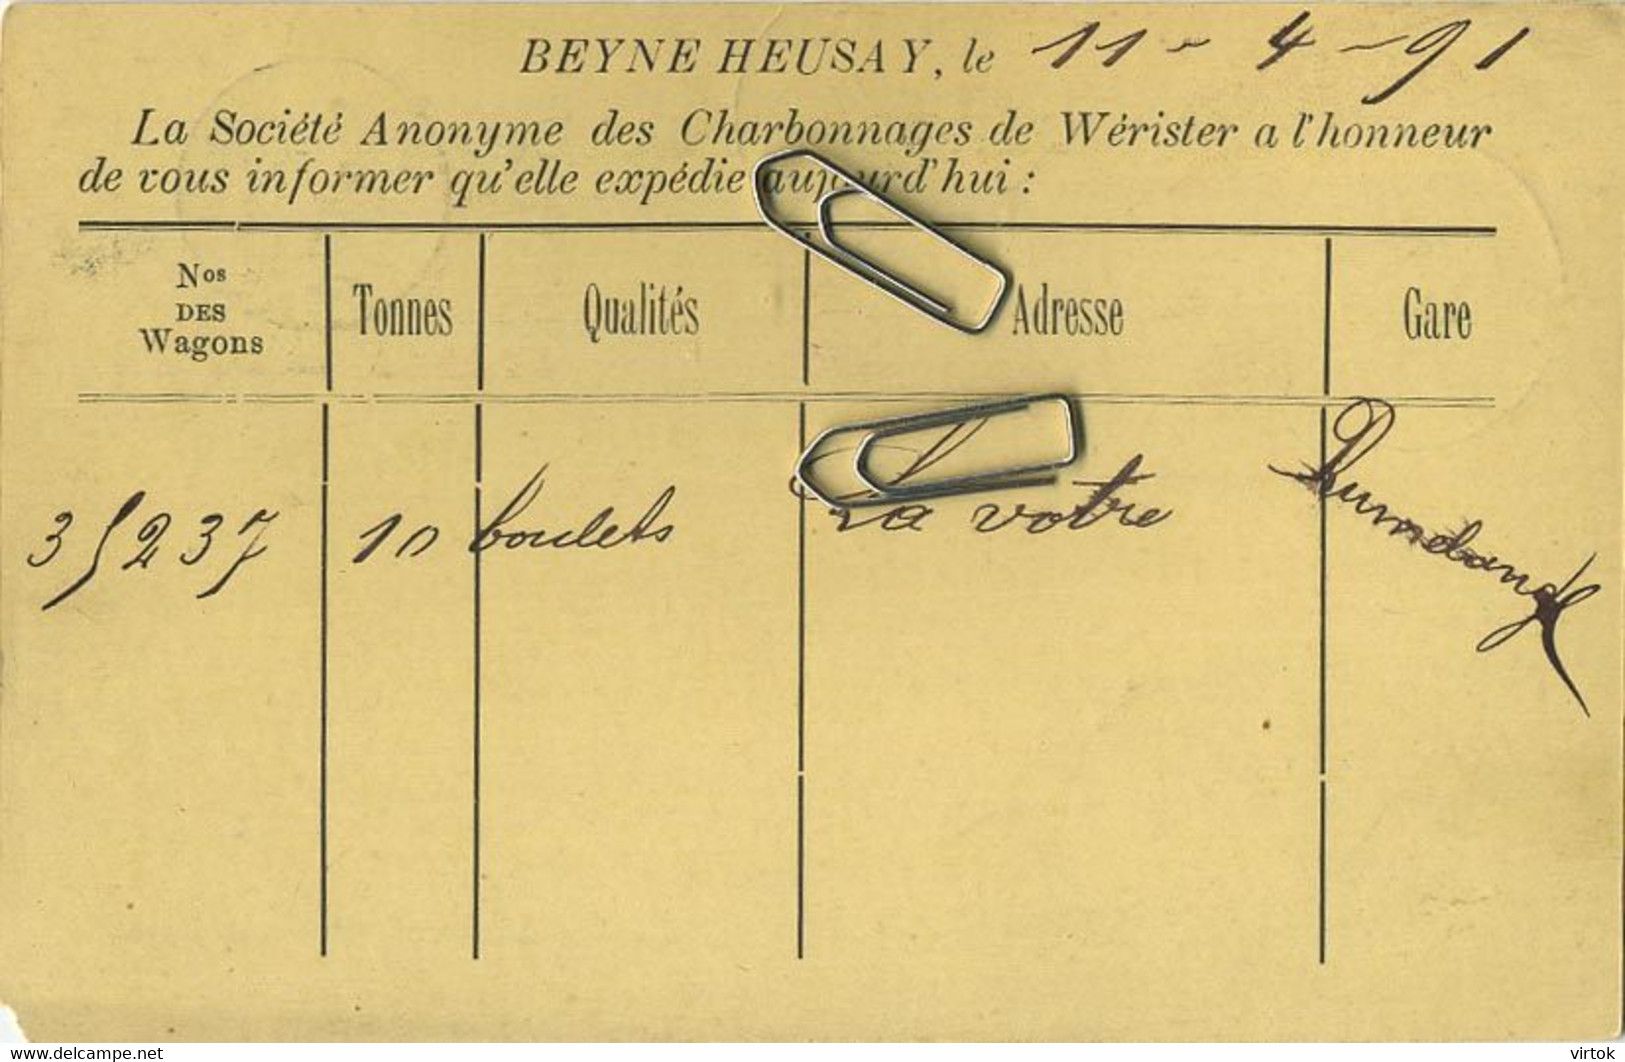 BEYNE HEUSAY, le 11 - 4 - 91
La Société Anonyme des Charbonnages de Wérister a l'honneur
de vous informer qu'elle expédie aujourd'hui :
Nos
DES
Wagons
Tonnes
Qualités
Adresse
Gare
35237 10 boulets La votre
delcampe.net
virtok